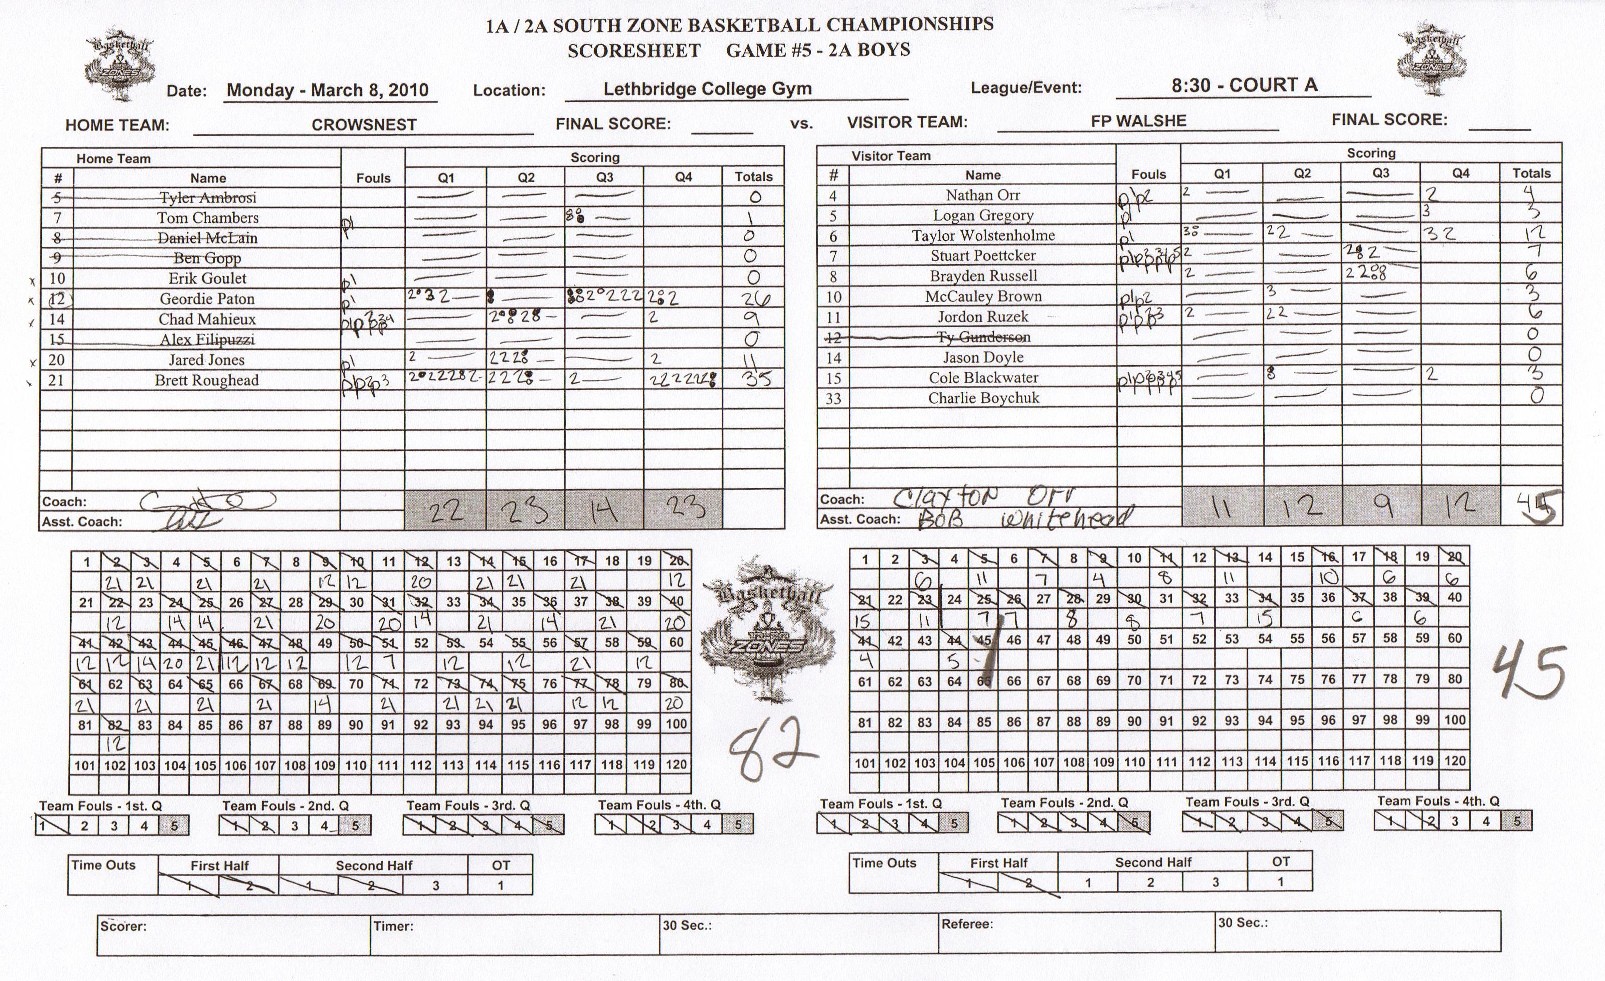 1A / 2A SOUTH ZONE BASKETBALL CHAMPIONSHIPS
SCORESHEET GAME #5 - 2A BOYS
Basketball ZONES
Basketball ZONES
Date: Monday - March 8, 2010 Location: Lethbridge College Gym League/Event: 8:30 - COURT A
HOME TEAM: CROWSNEST FINAL SCORE: vs. VISITOR TEAM: FP WALSHE FINAL SCORE:
Home Team Scoring
# Name Fouls Q1 Q2 Q3 Q4 Totals
5 Tyler Ambrosi 0
7 Tom Chambers p1 1
8 Daniel McLain 0
9 Ben Gopp 0
x 10 Erik Goulet p1 0
x 12 Geordie Paton p1 26
14 Chad Mahieux 9
15 Alex Filipuzzi 0
x 20 Jared Jones p1 2 2 11
21 Brett Roughead 2 35
Coach:
Asst. Coach:
22 23 14 23
Visitor Team Scoring
# Name Fouls Q1 Q2 Q3 Q4 Totals
4 Nathan Orr p1p2 2 2 4
5 Logan Gregory p1 3 3
6 Taylor Wolstenholme p1 22 32 12
7 Stuart Poettcker 2 7
8 Brayden Russell 2 6
10 McCauley Brown p1p2 3 3
11 Jordon Ruzek 2 22 6
12 Ty Gunderson 0
14 Jason Doyle 0
15 Cole Blackwater 2 3
33 Charlie Boychuk 0
Coach: Clayton Orr
Asst. Coach: BOB Whitehead
11 12 9 12 45
1 2 3 4 5 6 7 8 9 10 11 12 13 14 15 16 17 18 19 20
21 21 21 21 12 12 20 21 21 21 12
21 22 23 24 25 26 27 28 29 30 31 32 33 34 35 36 37 38 39 40
12 14 14 21 20 20 14 21 14 21 20
41 42 43 44 45 46 47 48 49 50 51 52 53 54 55 56 57 58 59 60
12 12 14 20 21 12 12 12 12 7 12 12 21 12
61 62 63 64 65 66 67 68 69 70 71 72 73 74 75 76 77 78 79 80
21 21 21 21 14 21 21 21 21 12 12 20
81 82 83 84 85 86 87 88 89 90 91 92 93 94 95 96 97 98 99 100
12
101 102 103 104 105 106 107 108 109 110 111 112 113 114 115 116 117 118 119 120
Basketball ZONES
82
1 2 3 4 5 6 7 8 9 10 11 12 13 14 15 16 17 18 19 20
6 11 7 4 8 11 10 6 6
21 22 23 24 25 26 27 28 29 30 31 32 33 34 35 36 37 38 39 40
15 11 7 7 8 8 7 15 6 6
41 42 43 44 45 46 47 48 49 50 51 52 53 54 55 56 57 58 59 60
4 5
61 62 63 64 65 66 67 68 69 70 71 72 73 74 75 76 77 78 79 80
81 82 83 84 85 86 87 88 89 90 91 92 93 94 95 96 97 98 99 100
101 102 103 104 105 106 107 108 109 110 111 112 113 114 115 116 117 118 119 120
45
Team Fouls - 1st. Q Team Fouls - 2nd. Q Team Fouls - 3rd. Q Team Fouls - 4th. Q
1 2 3 4 5 1 2 3 4 5 1 2 3 4 5 1 2 3 4 5
Team Fouls - 1st. Q Team Fouls - 2nd. Q Team Fouls - 3rd. Q Team Fouls - 4th. Q
1 2 3 4 5 1 2 3 4 5 1 2 3 4 5 1 2 3 4 5
Time Outs First Half Second Half OT
1 2 1 2 3 1
Time Outs First Half Second Half OT
1 2 1 2 3 1
Scorer: Timer: 30 Sec.: Referee: 30 Sec.: